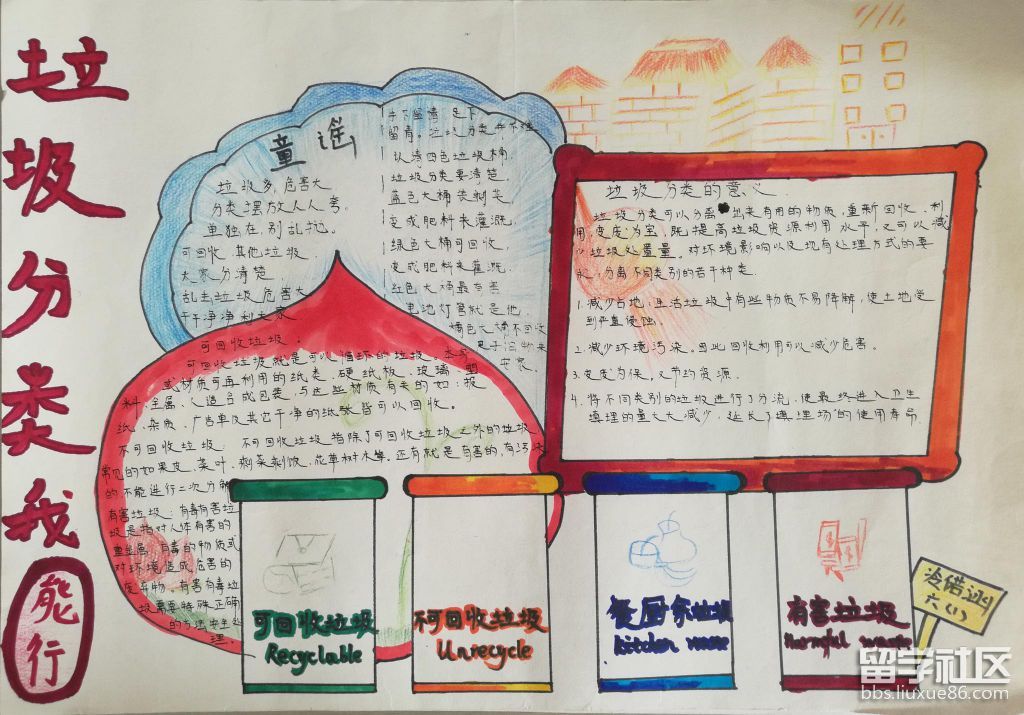 垃圾分类我
能行
童谣
垃圾多,危害大
分类摆放人人夸。
单独在,别乱拉。
可回收,其他垃圾
大家分清楚,
乱丢垃圾危害大
干干净净利大家
留青。垃圾分类
认清四色垃圾桶,
垃圾分类要清楚。
蓝色大桶装剩
变成肥料来灌溉,
绿色大桶可回收,
变成肥料来灌溉,
红色大桶最有害
电池灯管就是他,
橘色大桶不可收
可回收垃圾。
可回收垃圾就是可以循环的垃圾。本身
或材质可再利用的纸类、硬纸板、玻璃、塑
料、金属、人造合成包装,与这些材质有关的如:报
纸、杂质、广告单及其它干净的纸张皆可以回收。
不可回收垃圾:不可回收垃圾指除了可回收垃圾之外的垃圾
常见的如果皮、菜叶、剩菜剩饭、花草树木等。还有就是有害的,有污染
的不能进行二次分解
有害垃圾:有毒有害垃
圾是指对人体有害的
重金属、有毒的物质或
对环境造成危害的
废弃物。有害有毒垃
圾需要特殊正确
的方法安全处
理
垃圾分类的意义
垃圾分类可以分离出来有用的物质,重新回收、利
用,变废为宝,既提高垃圾资源利用水平,又可以减
少垃圾处置量。对环境影响以及现有处理方式的要
求,分离不同类别的若干种类
1.减少占地:生活垃圾中有些物质不易降解,使土地受
到严重侵蚀。
2.减少环境污染。因此回收利用可以减少危害。
3.变废为保。又节约资源.
4.将不同类别的垃圾进行了分流,使最终进入卫生
填埋的量大大减少,延长了填埋场的使用寿命
可回收垃圾
Recyclable
不可回收垃圾
Unrecycle
餐厨余垃圾
kitchen waste
有害垃圾
Harmful waste
六(1)
留学社区
bbs.liuxue86.com